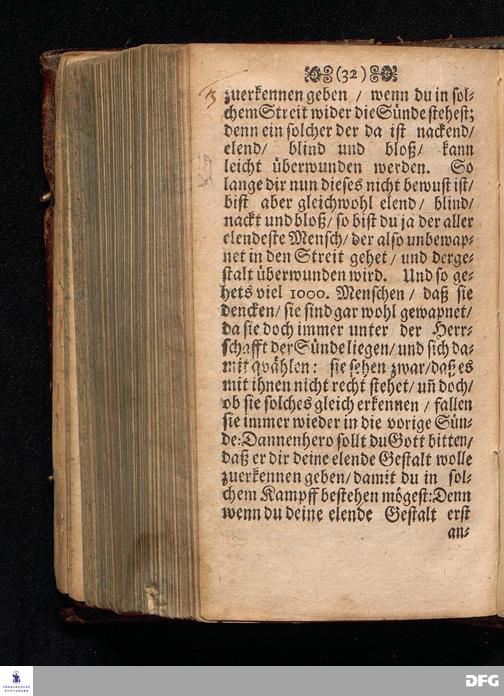 (32)
zuerkennen geben / wenn du in sol-
chem Streit wider die Sünde stehest;
denn ein solcher der da ist nackend/
elend/ blind und bloß/ kann
leicht überwunden werden. So
lange dir nun dieses nicht bewust ist/
bist aber gleichwohl elend/ blind/
nackt und bloß/ so bist du ja der aller
elendeste Mensch/ der also unbewap-
net in den Streit gehet/ und derge-
stalt überwunden wird. Und so ge-
hets viel 1000. Menschen / daß sie
dencken/ sie sind gar wohl gewapnet/
da sie doch immer unter der Herr-
schafft der Sünde liegen/ und sich da-
mit qvählen: sie sehen zwar/ daß es
mit ihnen nicht recht stehet/ uñ doch/
ob sie solches gleich erkennen / fallen
sie immer wieder in die vorige Sün-
de: Dannenhero sollt du Gott bitten/
daß er dir deine elende Gestalt wolle
zuerkennen geben/ damit du in sol-
chem Kampff bestehen mögest: Denn
wenn du deine elende Gestalt erst
an-
FRANCKESCHE STIFTUNGEN
DFG